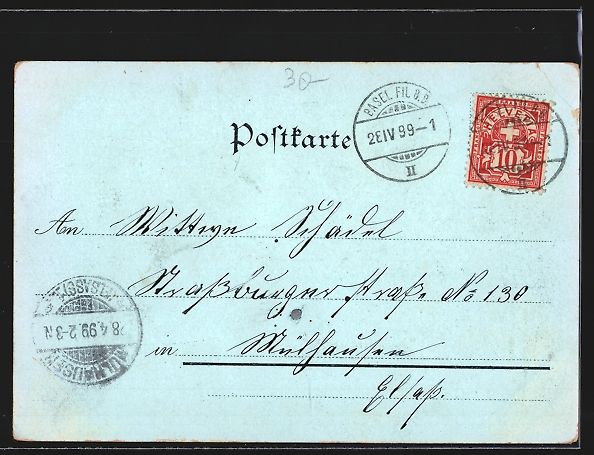 30-
Postkarte
BASEL FIL. B.B.
28 IV 99-1
II
HELVETIA
10
An Wittwe Schädel
Straßburgerstraße No 130
in Mülhausen
Elsaß.
MÜLHAUSEN (ELSASS)
28.4.99.2-3N